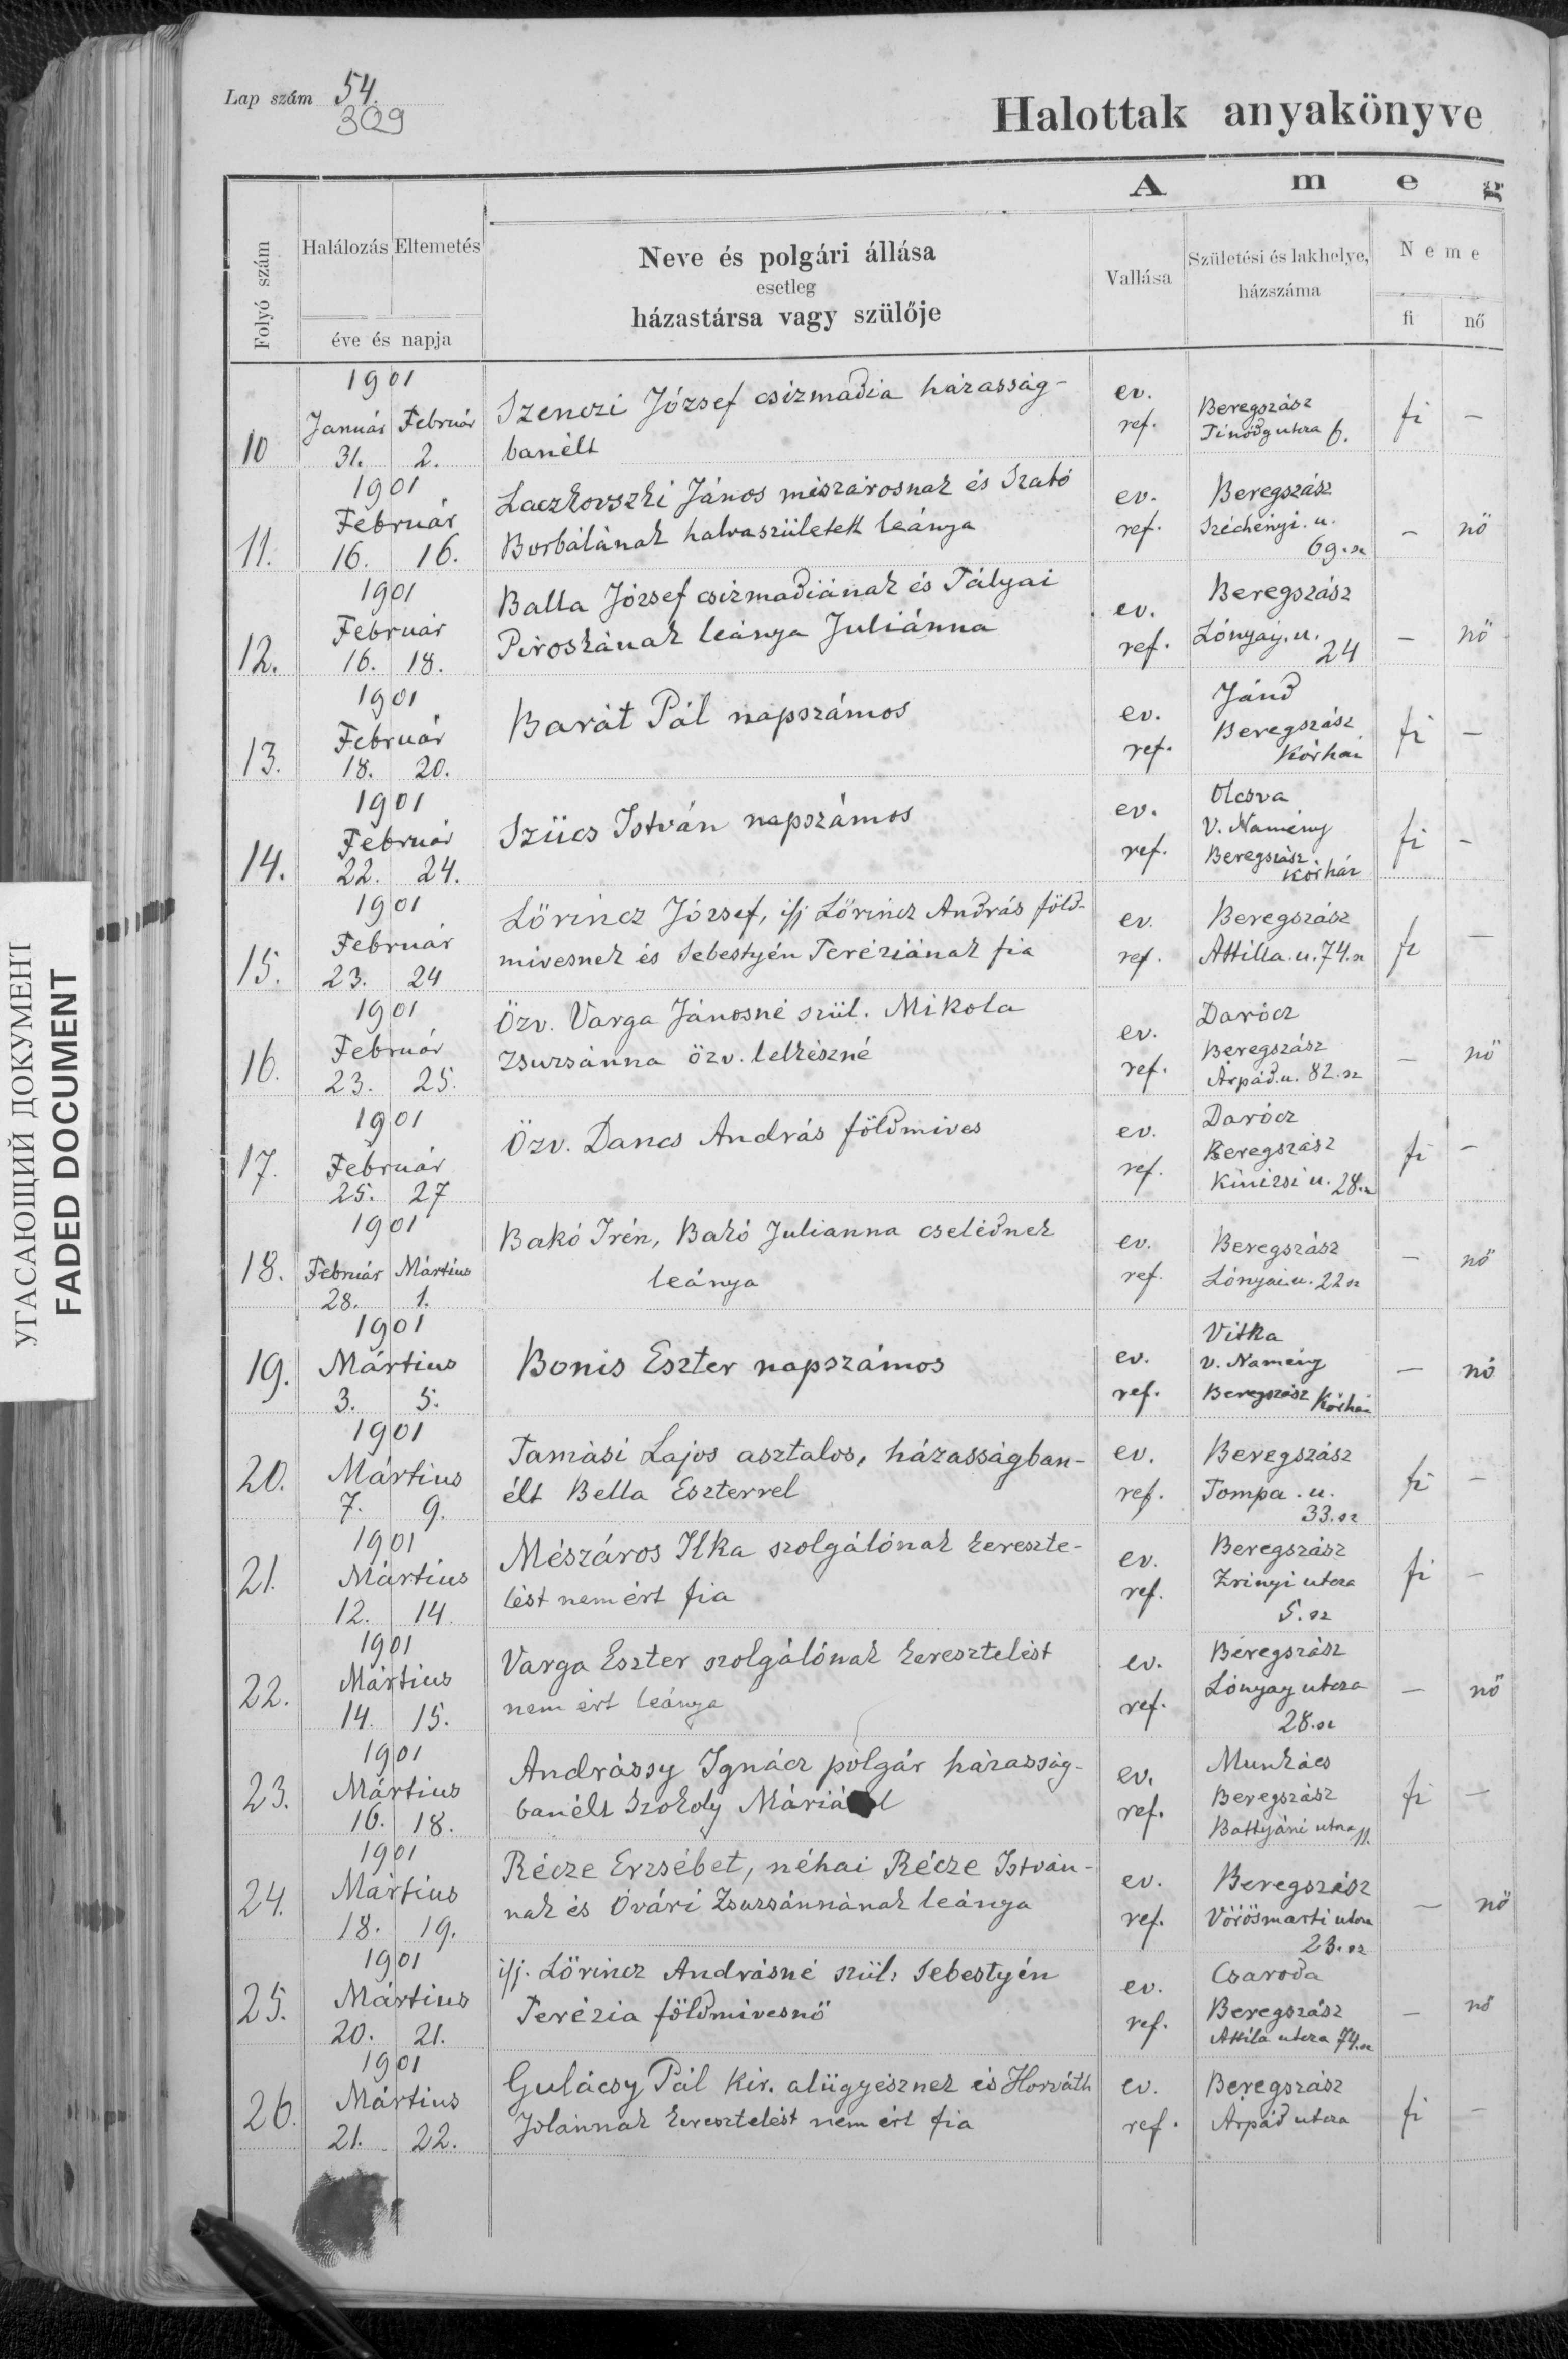 Lap szám 54.
309
Halottak anyakönyve
A m e g
Folyó szám
Halálozás Eltemetés
éve és napja
Neve és polgári állása
esetleg
házastársa vagy szülője
Vallása
Születési és lakhelye,
házszáma
Neme
fi nő
1901
10 Január Február
31. 2.
Szenczi József csizmadia házasság-
banélt
ev.
ref.
Beregszász
utcza 6.
fi –
1901
11. Február
16. 16.
Laczkovszki János mészárosnak és Szabó
Borbálának halva született leánya
ev.
ref.
Beregszász
Széchényi. u.
69. sz
– nő
1901
12. Február
16. 18.
Balla József csizmadiának és Tályai
Piroskának leánya Juliánna
ev.
ref.
Beregszász
Lónyay. u.
24
– nő
1901
13. Február
18. 20.
Barát Pál napszámos
ev.
ref.
Jánd
Beregszász
Kórház
fi –
1901
14. Február
22. 24.
Szücs István napszámos
ev.
ref.
Olcsva
V. Namény
Beregszász
Kórház
fi –
1901
15. Február
23. 24
Lőrincz József, ifj Lőrincz András föld-
mivesnek és Sebestyén Teréziának fia
ev.
ref.
Beregszász
Attilla. u. 74. sz
fi –
1901
16. Február
23. 25.
Özv. Varga Jánosné szül. Mikola
Zsuzsánna özv. lelkészné
ev.
ref.
Darócz
Beregszász
Árpád. u. 82. sz
– nő
1901
17. Február
25. 27
Özv. Dancs András földmives
ev.
ref.
Darócz
Beregszász
Kinizsi u. 28. sz
fi –
1901
18. Február Mártius
28. 1.
Bakó Irén, Bakó Julianna cselédnek
leánya
ev.
ref.
Beregszász
Lónyai. u. 22 sz
– nő
1901
19. Mártius
3. 5.
Bonis Eszter napszámos
ev.
ref.
Vitka
V. Namény
Beregszász Kórház
– nő
1901
20. Mártius
7. 9.
Tamási Lajos asztalos, házasságban-
élt Bella Eszterrel
ev.
ref.
Beregszász
Tompa. u.
33. sz
fi –
1901
21. Mártius
12. 14.
Mészáros Ilka szolgálónak kereszte-
lést nem ért fia
ev.
ref.
Beregszász
Zrinyi utcza
5. sz
fi –
1901
22. Mártius
14. 15.
Varga Eszter szolgálónak keresztelést
nem ért leánya
ev.
ref.
Beregszász
Lónyay utcza
28. sz
– nő
1901
23. Mártius
16. 18.
Andrássy Ignácz polgár házasság-
banélt Szokoly Máriával
ev.
ref.
Munkács
Beregszász
Battyáni utcza 11.
fi –
1901
24. Mártius
18. 19.
Récze Erzsébet, néhai Récze István-
nak és Óvári Zsuzsánnának leánya
ev.
ref.
Beregszász
Vörösmarti utcza
23. sz
– nő
1901
25. Mártius
20. 21.
ifj. Lőrincz Andrásné szül: Sebestyén
Terézia földmivesnő
ev.
ref.
Csaroda
Beregszász
Attila utcza 74. sz
– nő
1901
26. Mártius
21. 22.
Gulácsy Pál kir. alügyésznek és Horváth
Jolánnak keresztelést nem ért fia
ev.
ref.
Beregszász
Árpád utcza
fi –
УГАСАЮЩИЙ ДОКУМЕНТ
FADED DOCUMENT